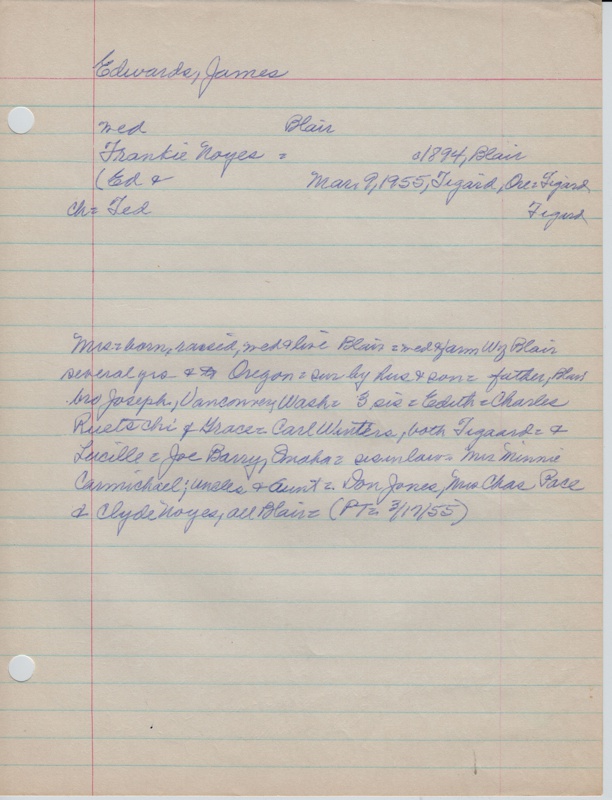 Edwards, James
med Blair
Frankie Noyes = a1894, Blair
(Ed & Mar. 9, 1955, Tigard, Ore = Tigard
ch = Ted Tigard
Mrs = born, raised, med & live Blair = med & farm W Blair
several yrs & to Oregon = sur by hus & son = father, Blair
bro Joseph, Vancouver, Wash = 3 sis = Edith = Charles
& Grace = Carl Winters, both Tigaard = &
Lucille = Joe Barry, Omaha = sis in law = Mrs Minnie
Carmichael; uncles & aunt = Don Jones, Mrs Chas Pace
& Clyde Noyes, all Blair = (PT = 3/17/55)